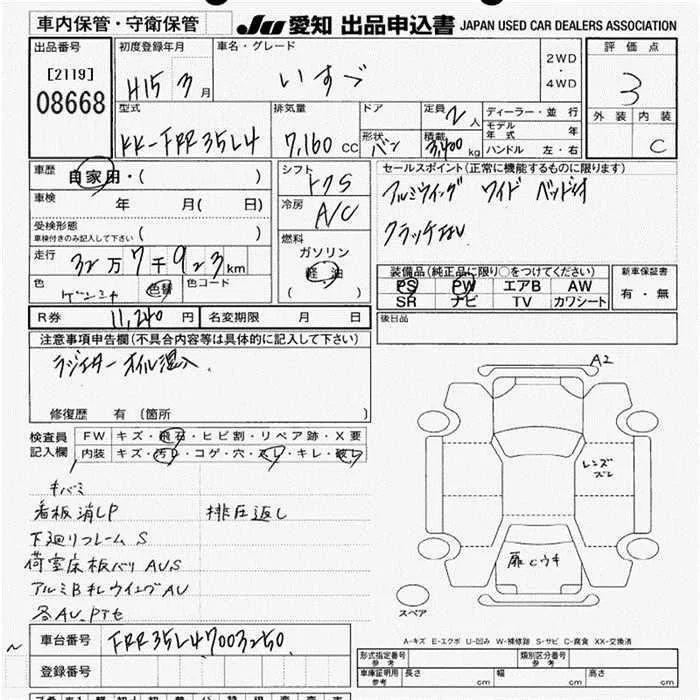 車内保管・守衛保管
JU 愛知 出品申込書 JAPAN USED CAR DEALERS ASSOCIATION
出品番号
[2119]
08668
初度登録年月
H15 3月
車名・グレード
いすゞ
2WD
・
4WD
評価点
3
外装 内装
C
型式
KK-FRR35L4
排気量
7,160 cc
ドア
形状 バン
定員 2人
積載 3,400 kg
ディーラー・並行
モデル年式 年
ハンドル 左・右
車歴 自家用・( )
車検 年 月(日)
受検形態
車検付きのみ記入して下さい ( )
走行 32万7千923km
色 色替 色コード
シフト
冷房 A/C
燃料
ガソリン
軽油
( )
セールスポイント(正常に機能するものに限ります)
アルミウイング ワイド ベッド付
クラッチなし
装備品(純正品に限り○をつけてください)
PS PW エアB AW
SR ナビ TV カワシート
新車保証書
有・無
R券 11,240円 名変期限 月 日
後日品
注意事項申告欄(不具合内容等は具体的に記入して下さい)
ラジエター オイル混入.
修復歴 有 (箇所
検査員
記入欄
FW キズ・飛石・ヒビ割・リペア跡・X要
内装 キズ・汚レ・コゲ・穴・スレ・キレ・破レ
キバミ
看板消しP 排圧返し
下廻りフレームS
荷室床板バリ AUS
アルミB 札 ウイング AU
各AU.Pてセ
A2
レンズ
ズレ
扉Cウキ
スペア
A-キズ E-エクボ U-凹み W-補修跡 S-サビ C-腐食 XX-交換済
車台番号 FRR35L47003250
登録番号
形式指定番号
参考
類別区分番号
参考
車庫証明用
参考
長さ cm 幅 cm 高さ cm